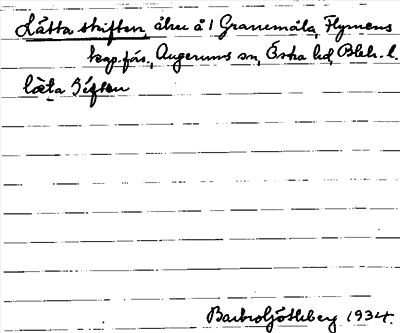 Låtta skiften, åker å 1 Granemåla, Flymens
kap.förs., Augerums sn, Östra hd, Blek. l.
læta šiftən
Barbro Göthberg 1934.